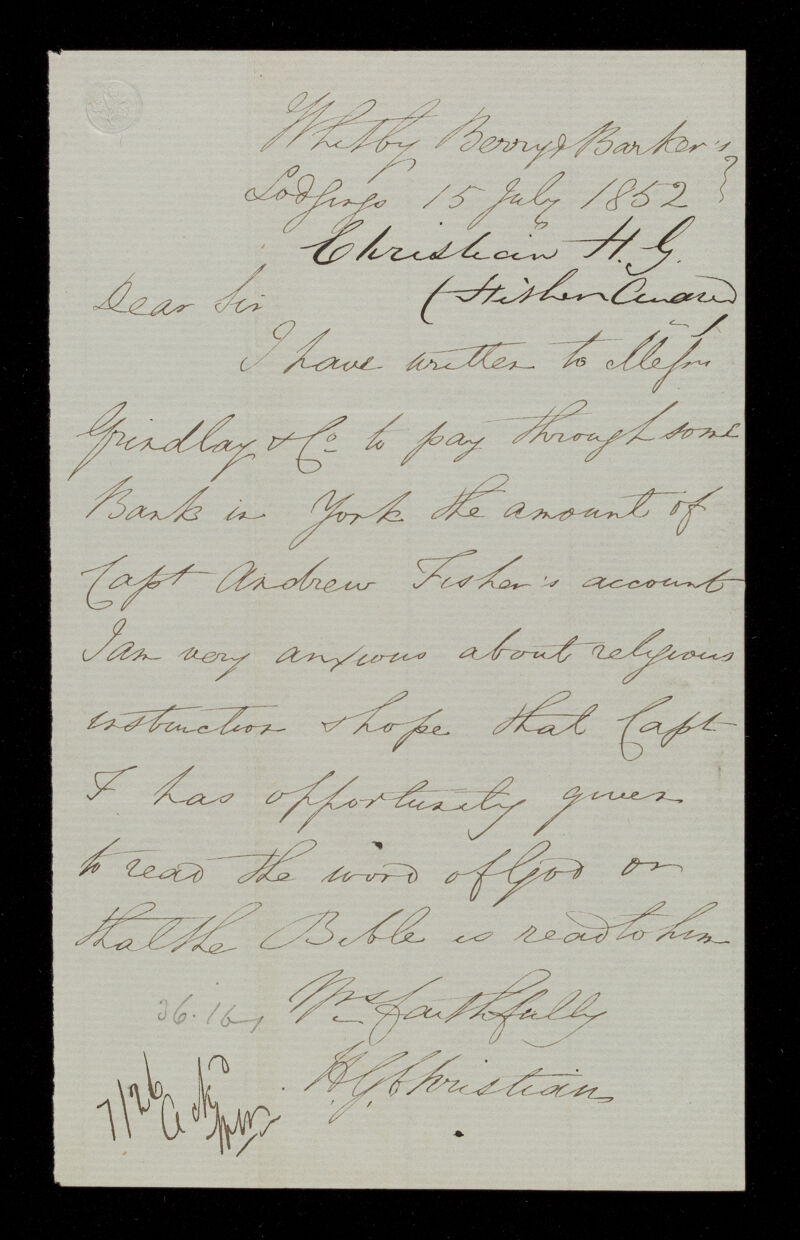 Whitby Berry & Barker's
Lodgings 15 July 1852
Christian H. G.
(Fisher Andrew)
Dear Sir
I have written to Messrs
Grindlay & Co to pay through some
Bank in York the amount of
Capt Andrew Fisher's account
I am very anxious about religious
instruction & hope that Capt
F has opportunity given
to read the word of God or
that the Bible is read to him
Yrs faithfully
H. G. Christian
36.16
7/26
Ackd